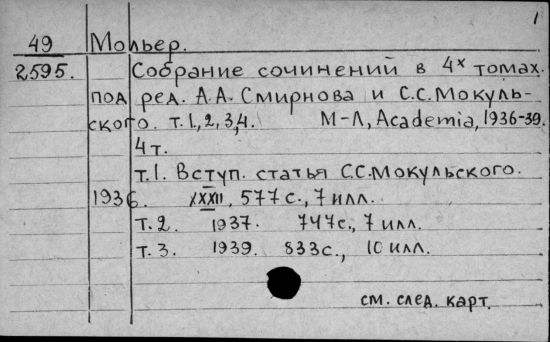 1
49 Мольер.
2595. Собрание сочинений в 4х томах.
под ред. А.А. Смирнова и С.С. Мокуль-
ского. т. 1, 2, 3, 4. М-Л, Academia, 1936-39.
4 т.
т. 1. Вступ. статья С.С. Мокульского.
1936. XXXII, 577 с., 7 илл.
т. 2. 1937. 747 с., 7 илл.
т. 3. 1939. 833 с., 10 илл.
см. след. карт.